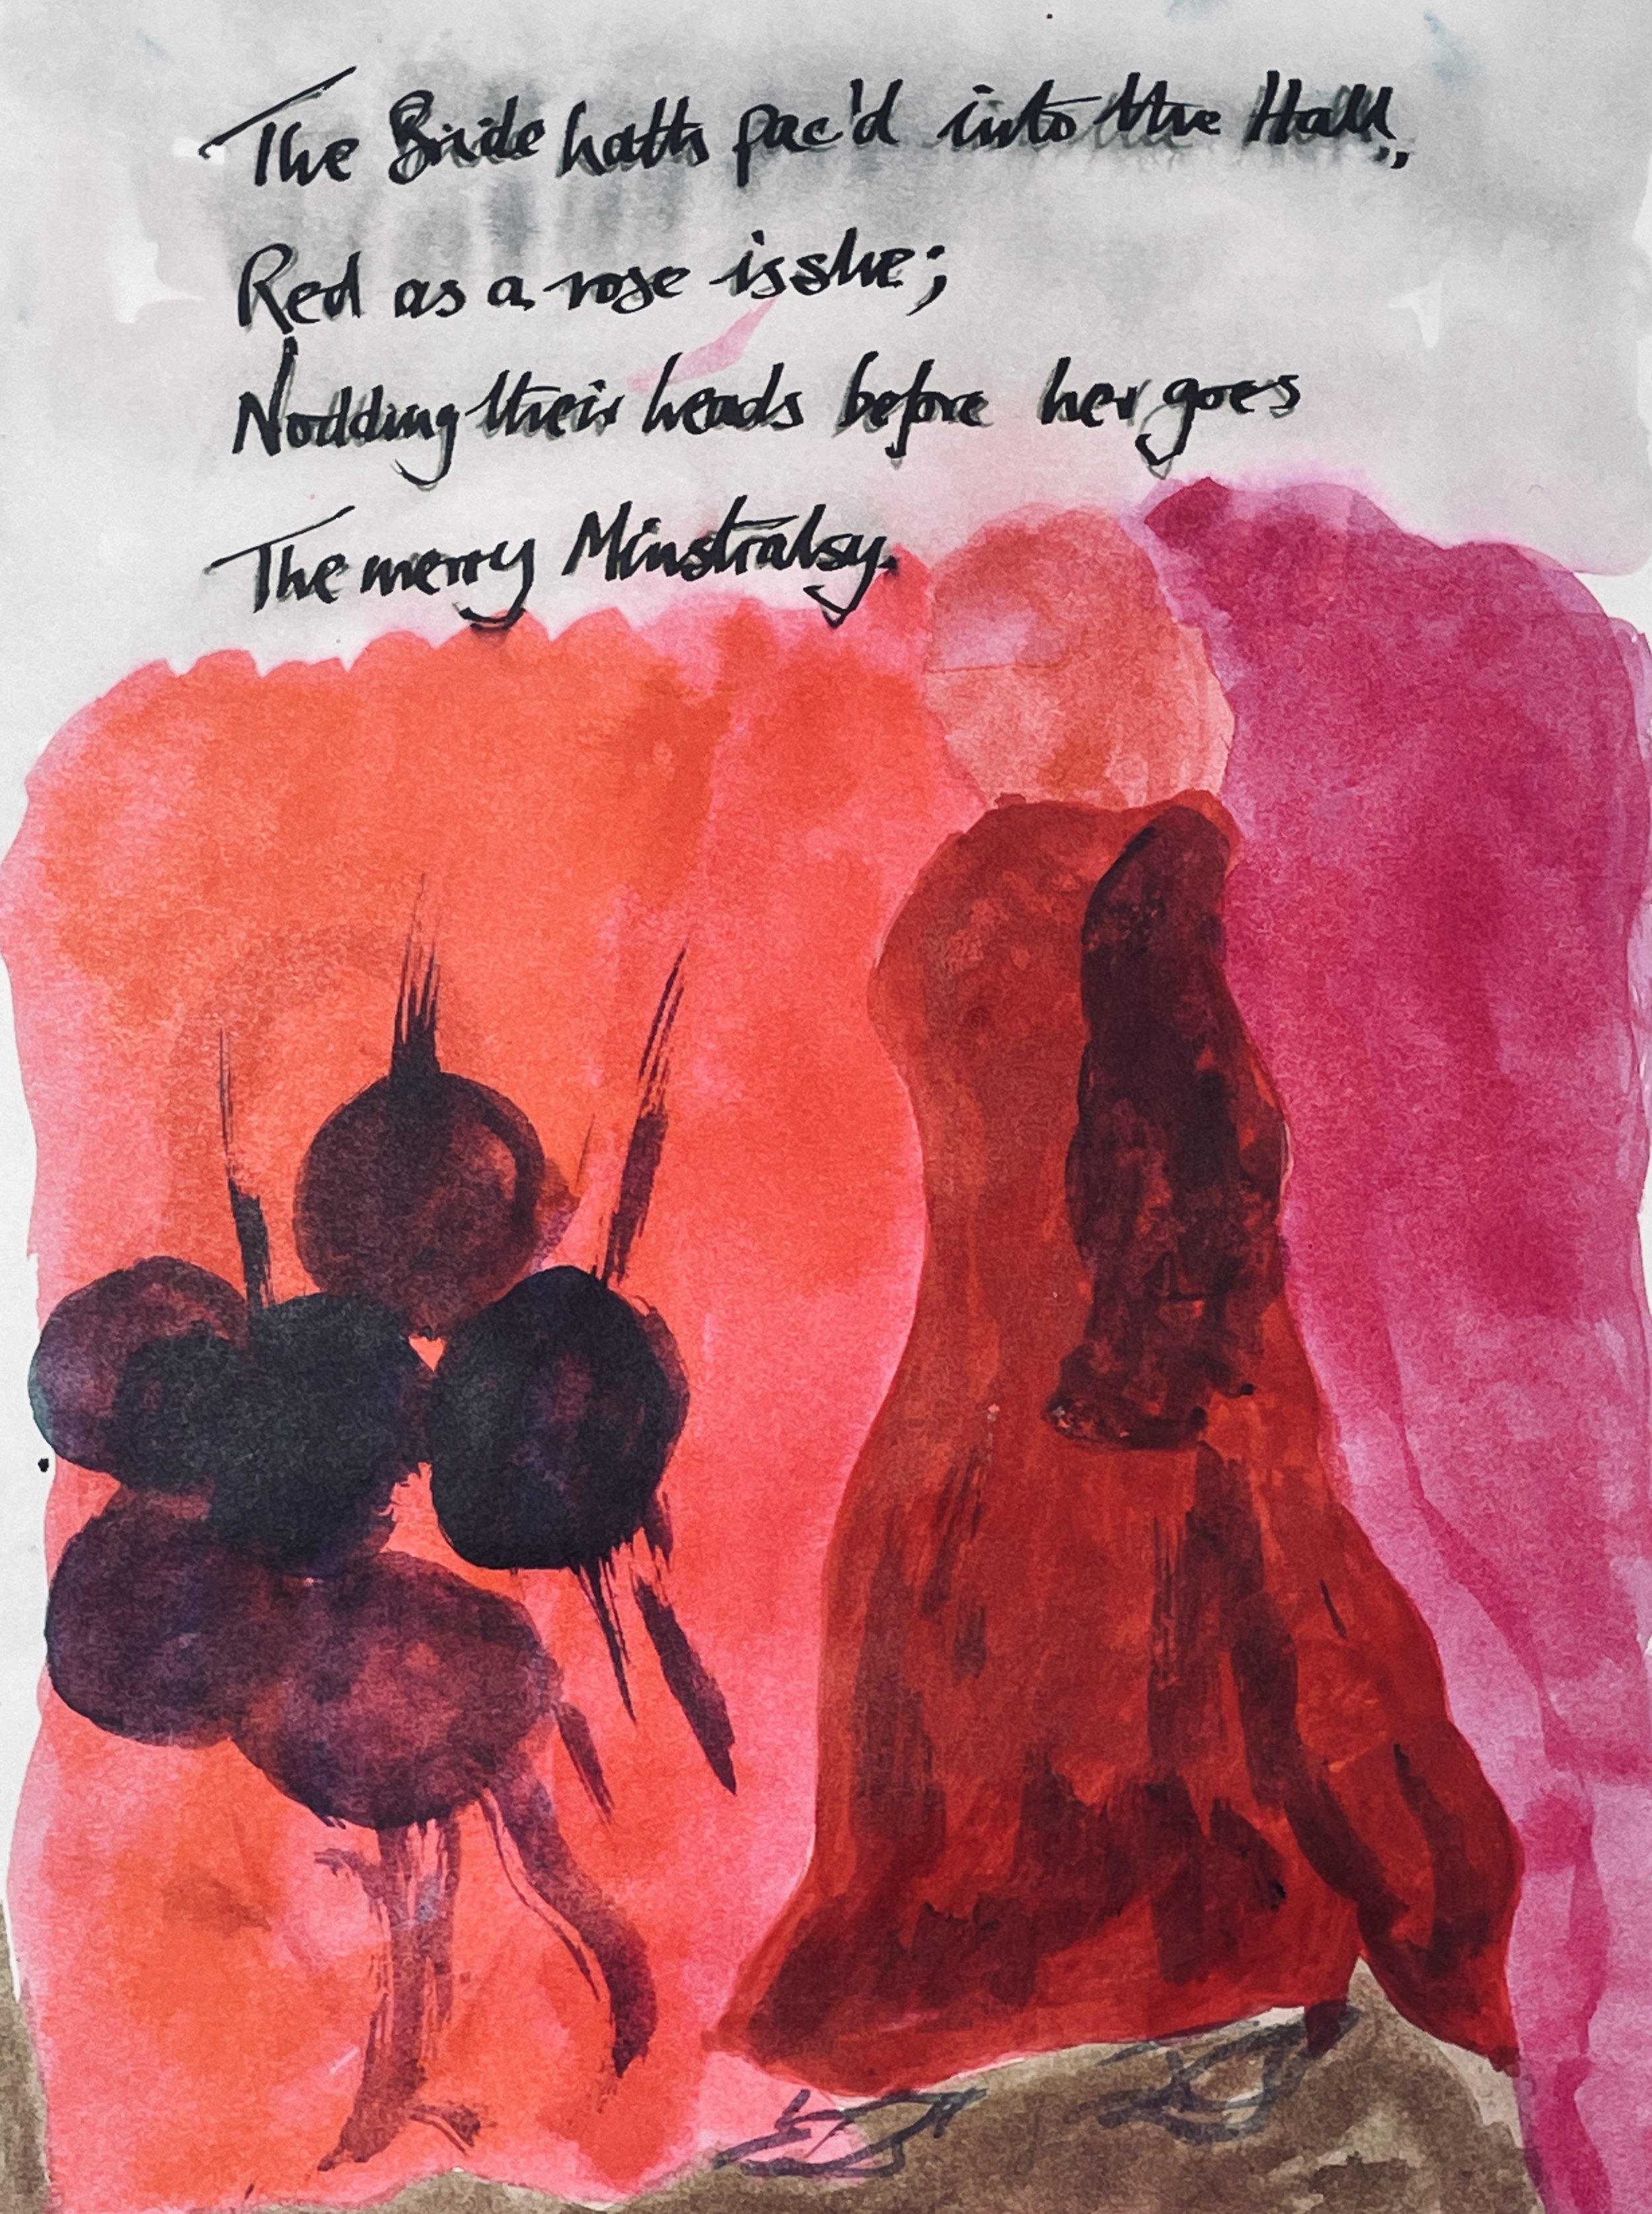 The Bride hath pac'd into the Hall,
Red as a rose is she;
Nodding their heads before her goes
The merry Minstralsy.